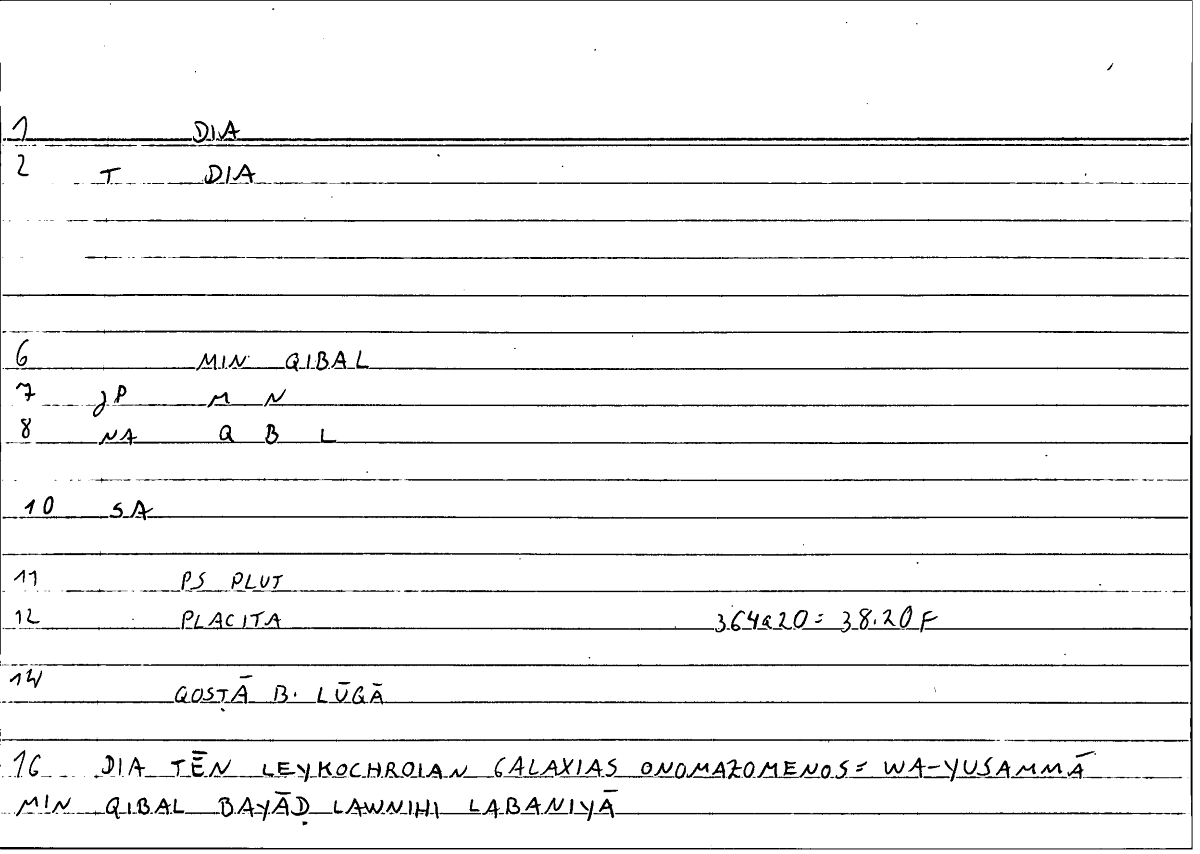 1 DIA
2 T DIA
6 MIN QIBAL
7 JP M N
8 NA Q B L
10 SA
11 PS PLUT
12 PLACITA 364a20 = 38.20 F
14 QOSṬĀ B. LŪQĀ
16 DIA TĒN LEYKOCHROIAN GALAXIAS ONOMAZOMENOS = WA-YUSAMMĀ
MIN QIBAL BAYĀḌ LAWNIHI LABANIYĀ